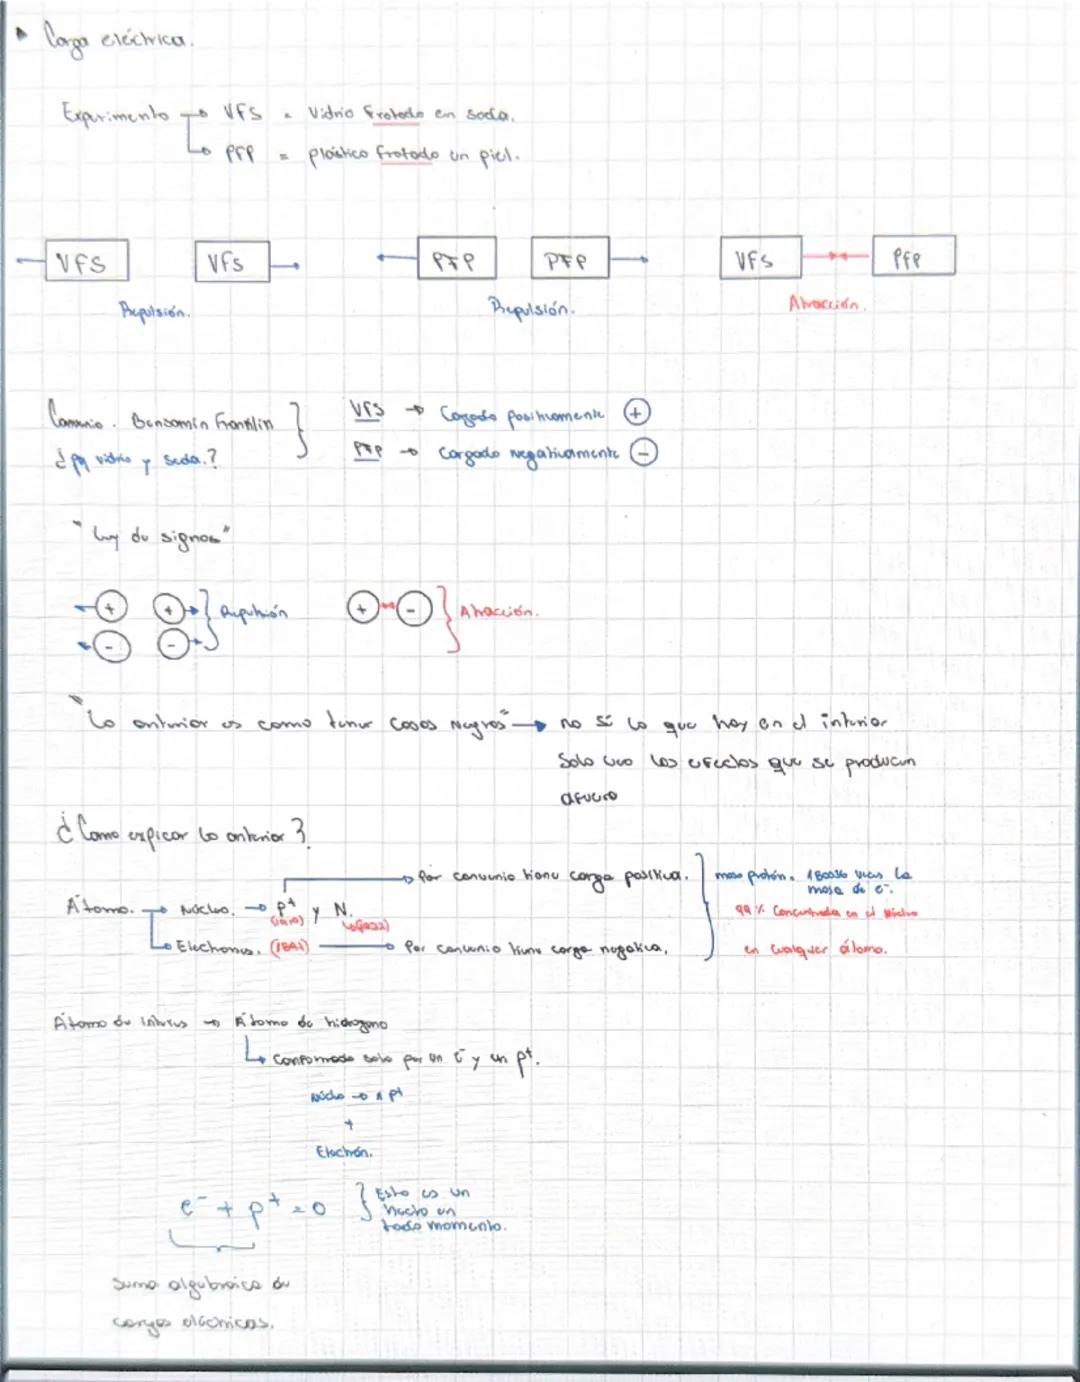 Carga eléctrica.
Experimento → VFS = Vidrio frotado en seda.
→ PFP = plástico frotado en piel.
VFS VFS PFP PFP VFS PFP
Repulsión. Repulsión. Atracción.
Convenio. Benjamin Franklin } VFS → Cargado positivamente +
¿pq vidrio y seda.? PFP → Cargado negativamente -
"Ley de signos"
+ + } Repulsión + - } Atracción.
- -
"Lo anterior es como tener cajas negras" → no sé lo que hay en el interior
Solo veo los efectos que se producen
afuera
¿Como expicar lo anterior?
→ Por convenio tiene carga positiva. } masa protón = 1800 veces la
masa de e-.
Átomo. → Núcleo. → p+ y N.
99% Concentrada en el Núcleo
→ Electrones. → Por convenio tiene carga negativa.
en cualquier átomo.
Átomo de interes → Átomo de hidrogeno
→ Conformado solo por un e- y un p+.
Núcleo → 1 p+
+
Electrón.
e- + p+ = 0 } Esto es un
hecho en
todo momento.
Suma algebraica de
cargas eléctricas.